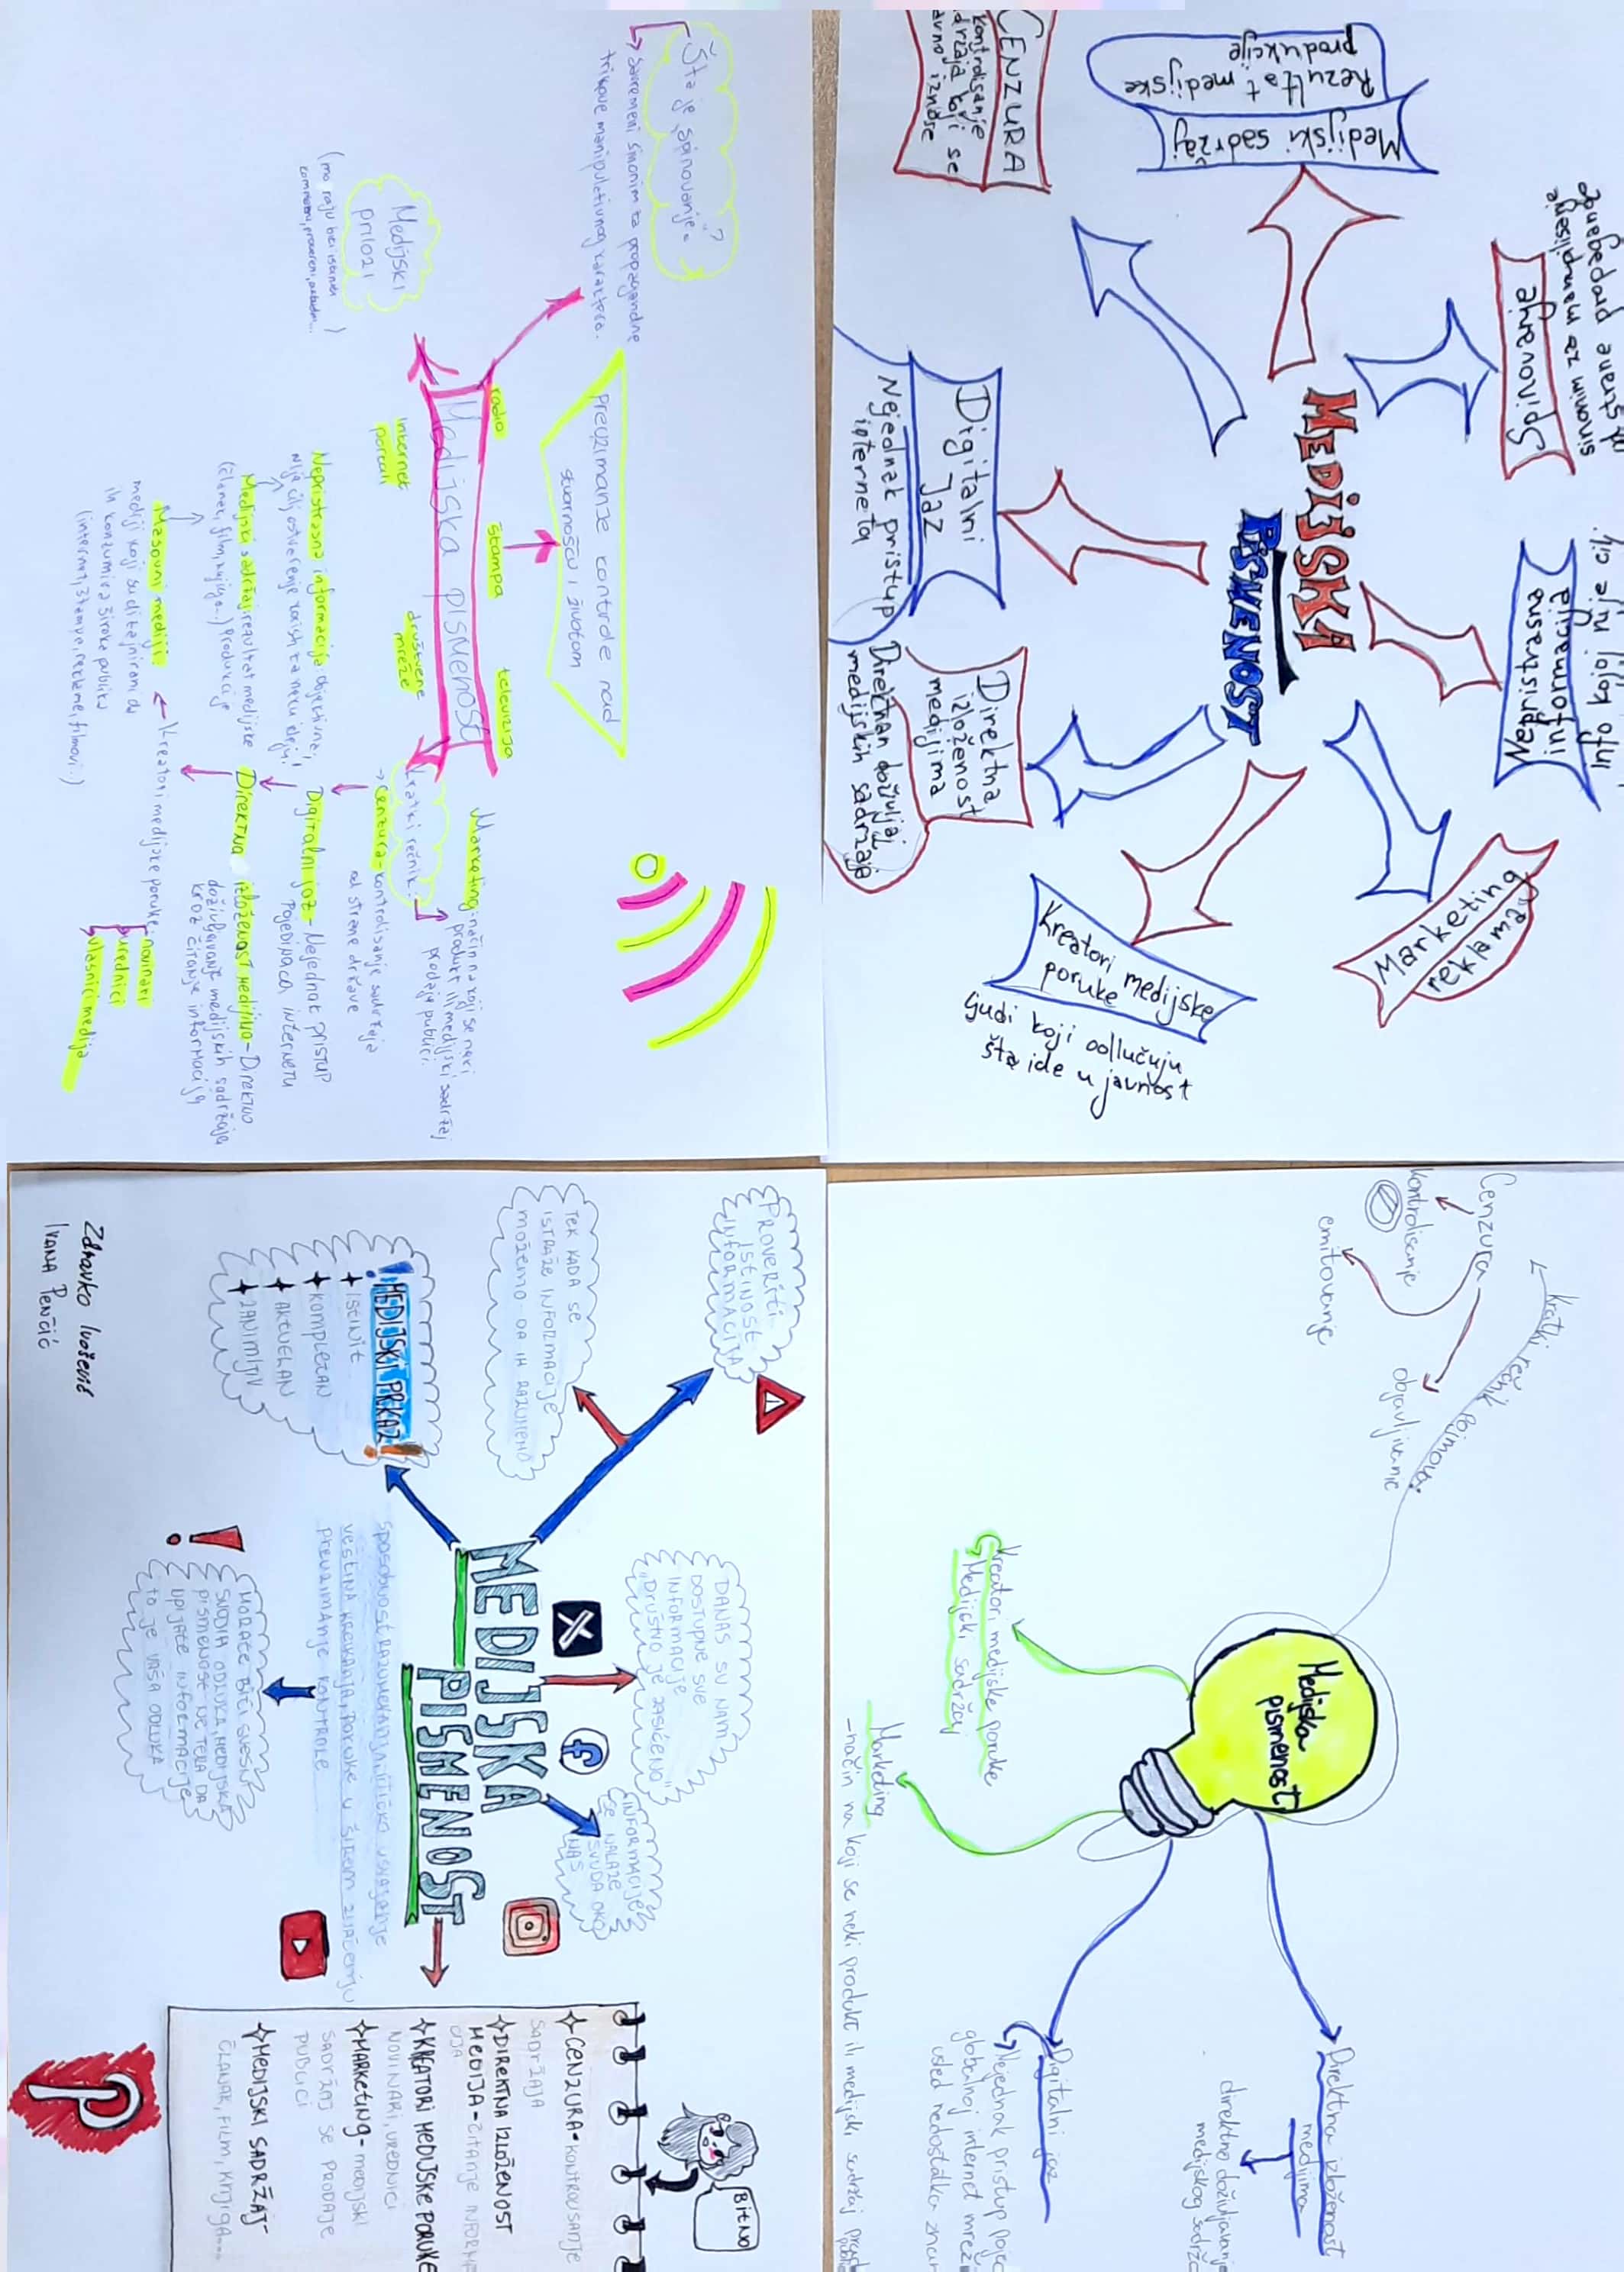 Šta je „spinovanje"?
savremeni sinonim za propagandne
trikove manipulativnog karaktera.
Medijski
prilozi
preuzimanje kontrole nad
stvarnošću i životom
radio
štampa
televizija
Medijska pismenost
internet
portali
društvene
mreže
Marketing: način na koji se neki
produkt ili medijski sadržaj
prodaje publici.
kratki rečnik:
→ Cenzura - kontrolisanje sadržaja
od strane države
Digitalni jaz - Nejednak pristup
pojedinaca internetu
Direktna izloženost medijima - Direktno
doživljavanje medijskih sadržaja
kroz čitanje informacija
Kreatori medijske poruke: novinari
urednici
vlasnici medija
Nepristrasna informacija: objektivna,
Medijski sadržaj: rezultat medijske
(članak, film, knjiga...) produkcije
Masovni mediji:
mediji koji su dizajnirani da
ih konzumira široka publika
(internet, štampe, reklame, filmovi...)
CENZURA
kontrolisanje
Rezultat medijske
produkcije
Medijski sadržaj
Spinovanje
sinonim za manipulisanje
Nepristrasna
informacija
Info kojoj nije cilj
MEDIJSKA
PISMENOST
Digitalni
Jaz
Nejednak pristup
interneta
Direktna
izloženost
medijima
Direktnan doživljaj
medijskih sadržaja
Marketing
reklama
Kreatori medijske
poruke
ljudi koji odlučuju
šta ide u javnost
PROVERITI
ISTINOST
INFORMACIJA
TEK KADA SE
ISTRAŽE INFORMACIJE
MOŽEMO DA IH RAZUMEMO
! MEDIJSKI PRKAZ !
ISTINIT
KOMPLETAN
AKTUELAN
ZANIMLJIV
Zdravko Ivošević
Ivana Penčić
DANAS SU NAM
DOSTUPNE SVE
INFORMACIJE
„DRUŠTVO JE ZASIĆENO"
INFORMACIJE
SE NALAZE
SVUDA OKO
NAS
MEDIJSKA
PISMENOST
preuzimanje kontrole
MORAĆE BIĆI SVESNI
SVOJIH ODLUKA, MEDIJSKA
PISMENOST NE TERA DA
UPIJATE INFORMACIJE
to je VAŠA ODLUKA
BITNO
CENZURA - KONTROLISANJE
SADRŽAJA
DIREKTNA IZLOŽENOST
MEDIJA - ČITANJE
KREATORI MEDIJSKE PORUKE
NOVINARI, UREDNICI
MARKETING - MEDIJSKI
SADRŽAJ SE PRODAJE
PUBLICI
MEDIJSKI SADRŽAJ -
ČLANAK, FILM, KNJIGA...
Kratki rečnik pojmova:
Cenzura
kontrolisanje
emitovanje
objavljivanje
Medijska
pismenost
Kreatori medijske poruke
Medijski sadržaj
Marketing
- način na koji se neki produkt ili medijski sadržaj
Direktna izloženost
medijima
direktno doživljavanje
medijskog
Digitalni jaz
Nejednak pristup
globalnoj internet
usled nedostatka